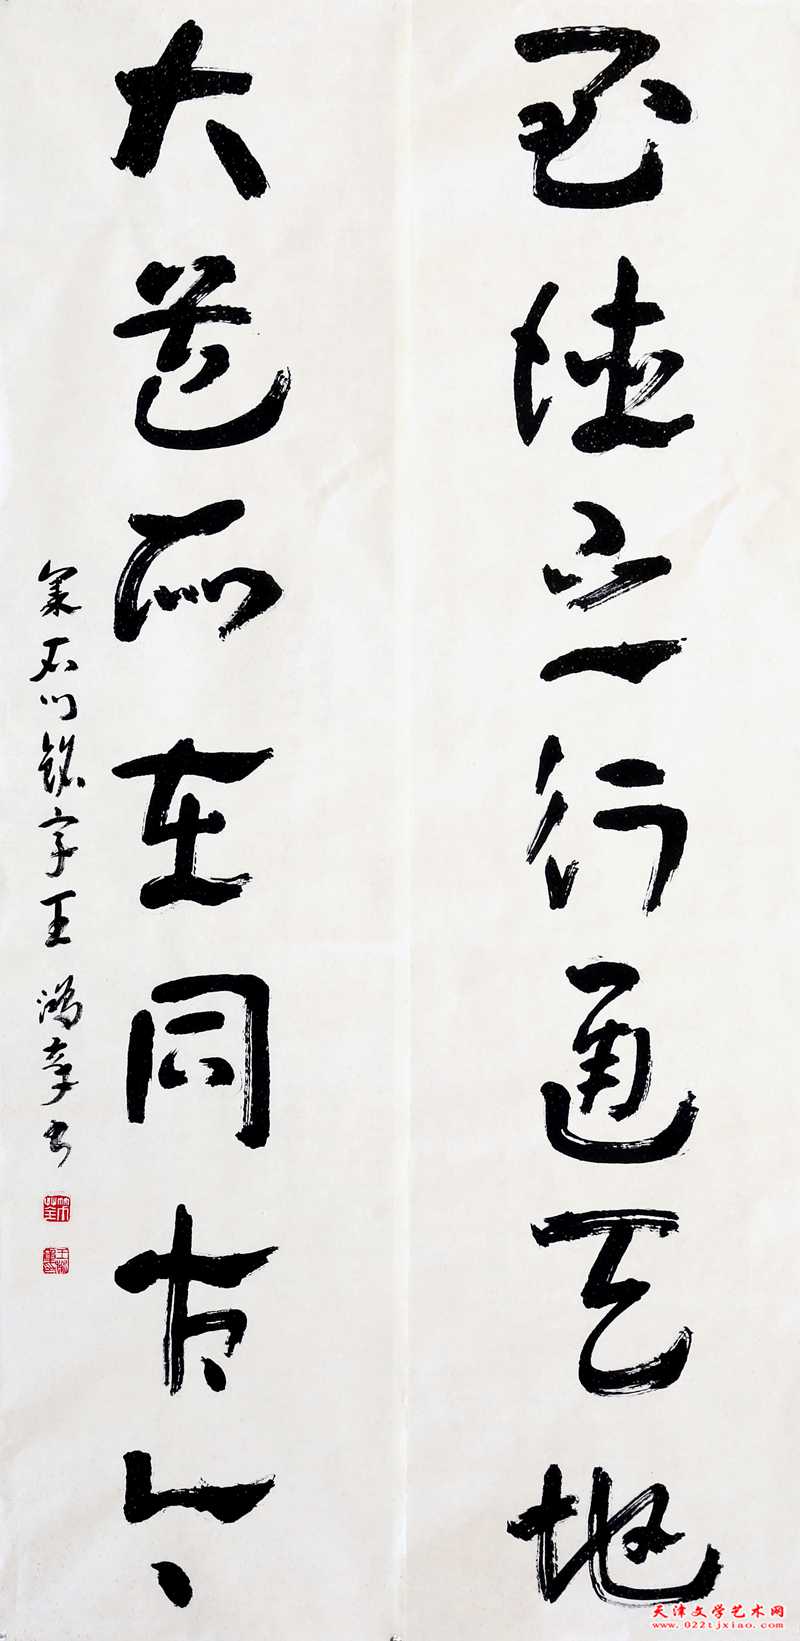 至德之行通天地
大道所在同古今
集石门铭字王鸿章书
天津文学艺术网
www.022tjxiao.com